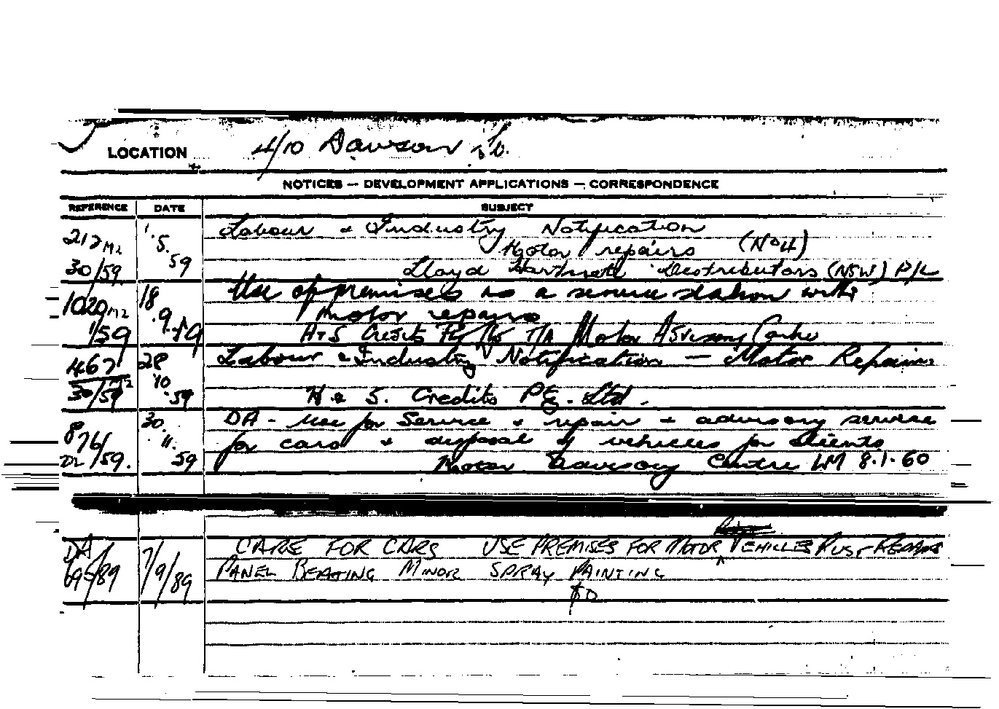 LOCATION 4/10 Dawson St.
NOTICES — DEVELOPMENT APPLICATIONS — CORRESPONDENCE
REFERENCE DATE SUBJECT
212 M2 1.5. Labour & Industry Notification
Motor repairs (No4)
30/59 59 Lloyd Distributors (NSW) P/L
1020 M2 18 Use of premises as a service station with
.9. motor repairs
1/59 59 H & S Credits Pty Ltd T/A Motor Advisory Centre
467 28 Labour & Industry Notification — Motor Repairs
M2 10
30/59 59 H & S. Credits Pty. Ltd.
30. DA - Use for Service & repair & advisory service
876/ 11. for cars & disposal of vehicles for clients
DL/59. 59 Motor Advisory Centre LM 8.1.60
DA CARE FOR CARS USE PREMISES FOR MOTOR VEHICLES RUST REPAIRS
695/89 7/9/89 PANEL BEATING MINOR SPRAY PAINTING